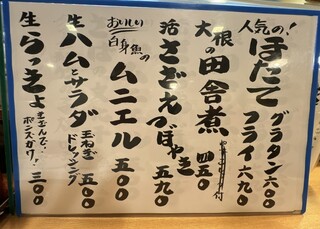 人気の!
ほたて
グラタン六〇〇
フライ六九〇
大根の
田舎煮
四五〇
付
活さざえつぼやき
五九〇
おいしい
白身魚の
ムニエル
五〇〇
生ハムとサラダ
玉ねぎ
ドレッシング
五〇〇
生らっきょ
ポンズかけ!
三〇〇